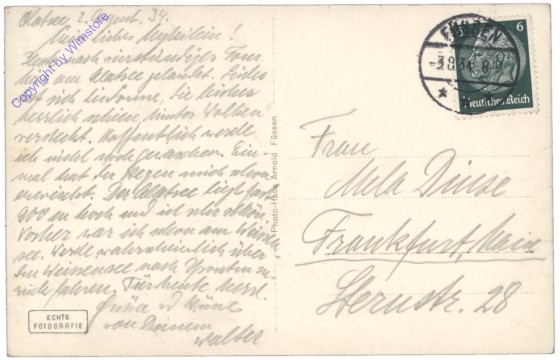 Alatsee 2. August. 34.
Mein liebes Mutterlein!
Bin nach vierstündiger Tour
hier am Alatsee gelandet. Leider
hat sich die Sonne, die bisher
herrlich schien, hinter Wolken
versteckt. Hoffentlich werde
ich nicht noch gewaschen. Ein-
mal hat der Regen mich schon
erwischt. Der Alatsee liegt fast
900 m hoch und ist sehr schön.
Vorher war ich schon am Weissen-
see. Werde wahrscheinlich über
den Weissensee nach Pfronten zu-
rück fahren. Für heute herzl.
Grüße u Küsse
von Deinem
Walter
ECHTE
FOTOGRAFIE
Photo-Haus Arnold Füssen
FÜSSEN
-3.8.34. 8-9
6
Deutsches Reich
Frau
Mela Dinse
Frankfurt/Main
Sternstr. 28
Copyright by Wimstore